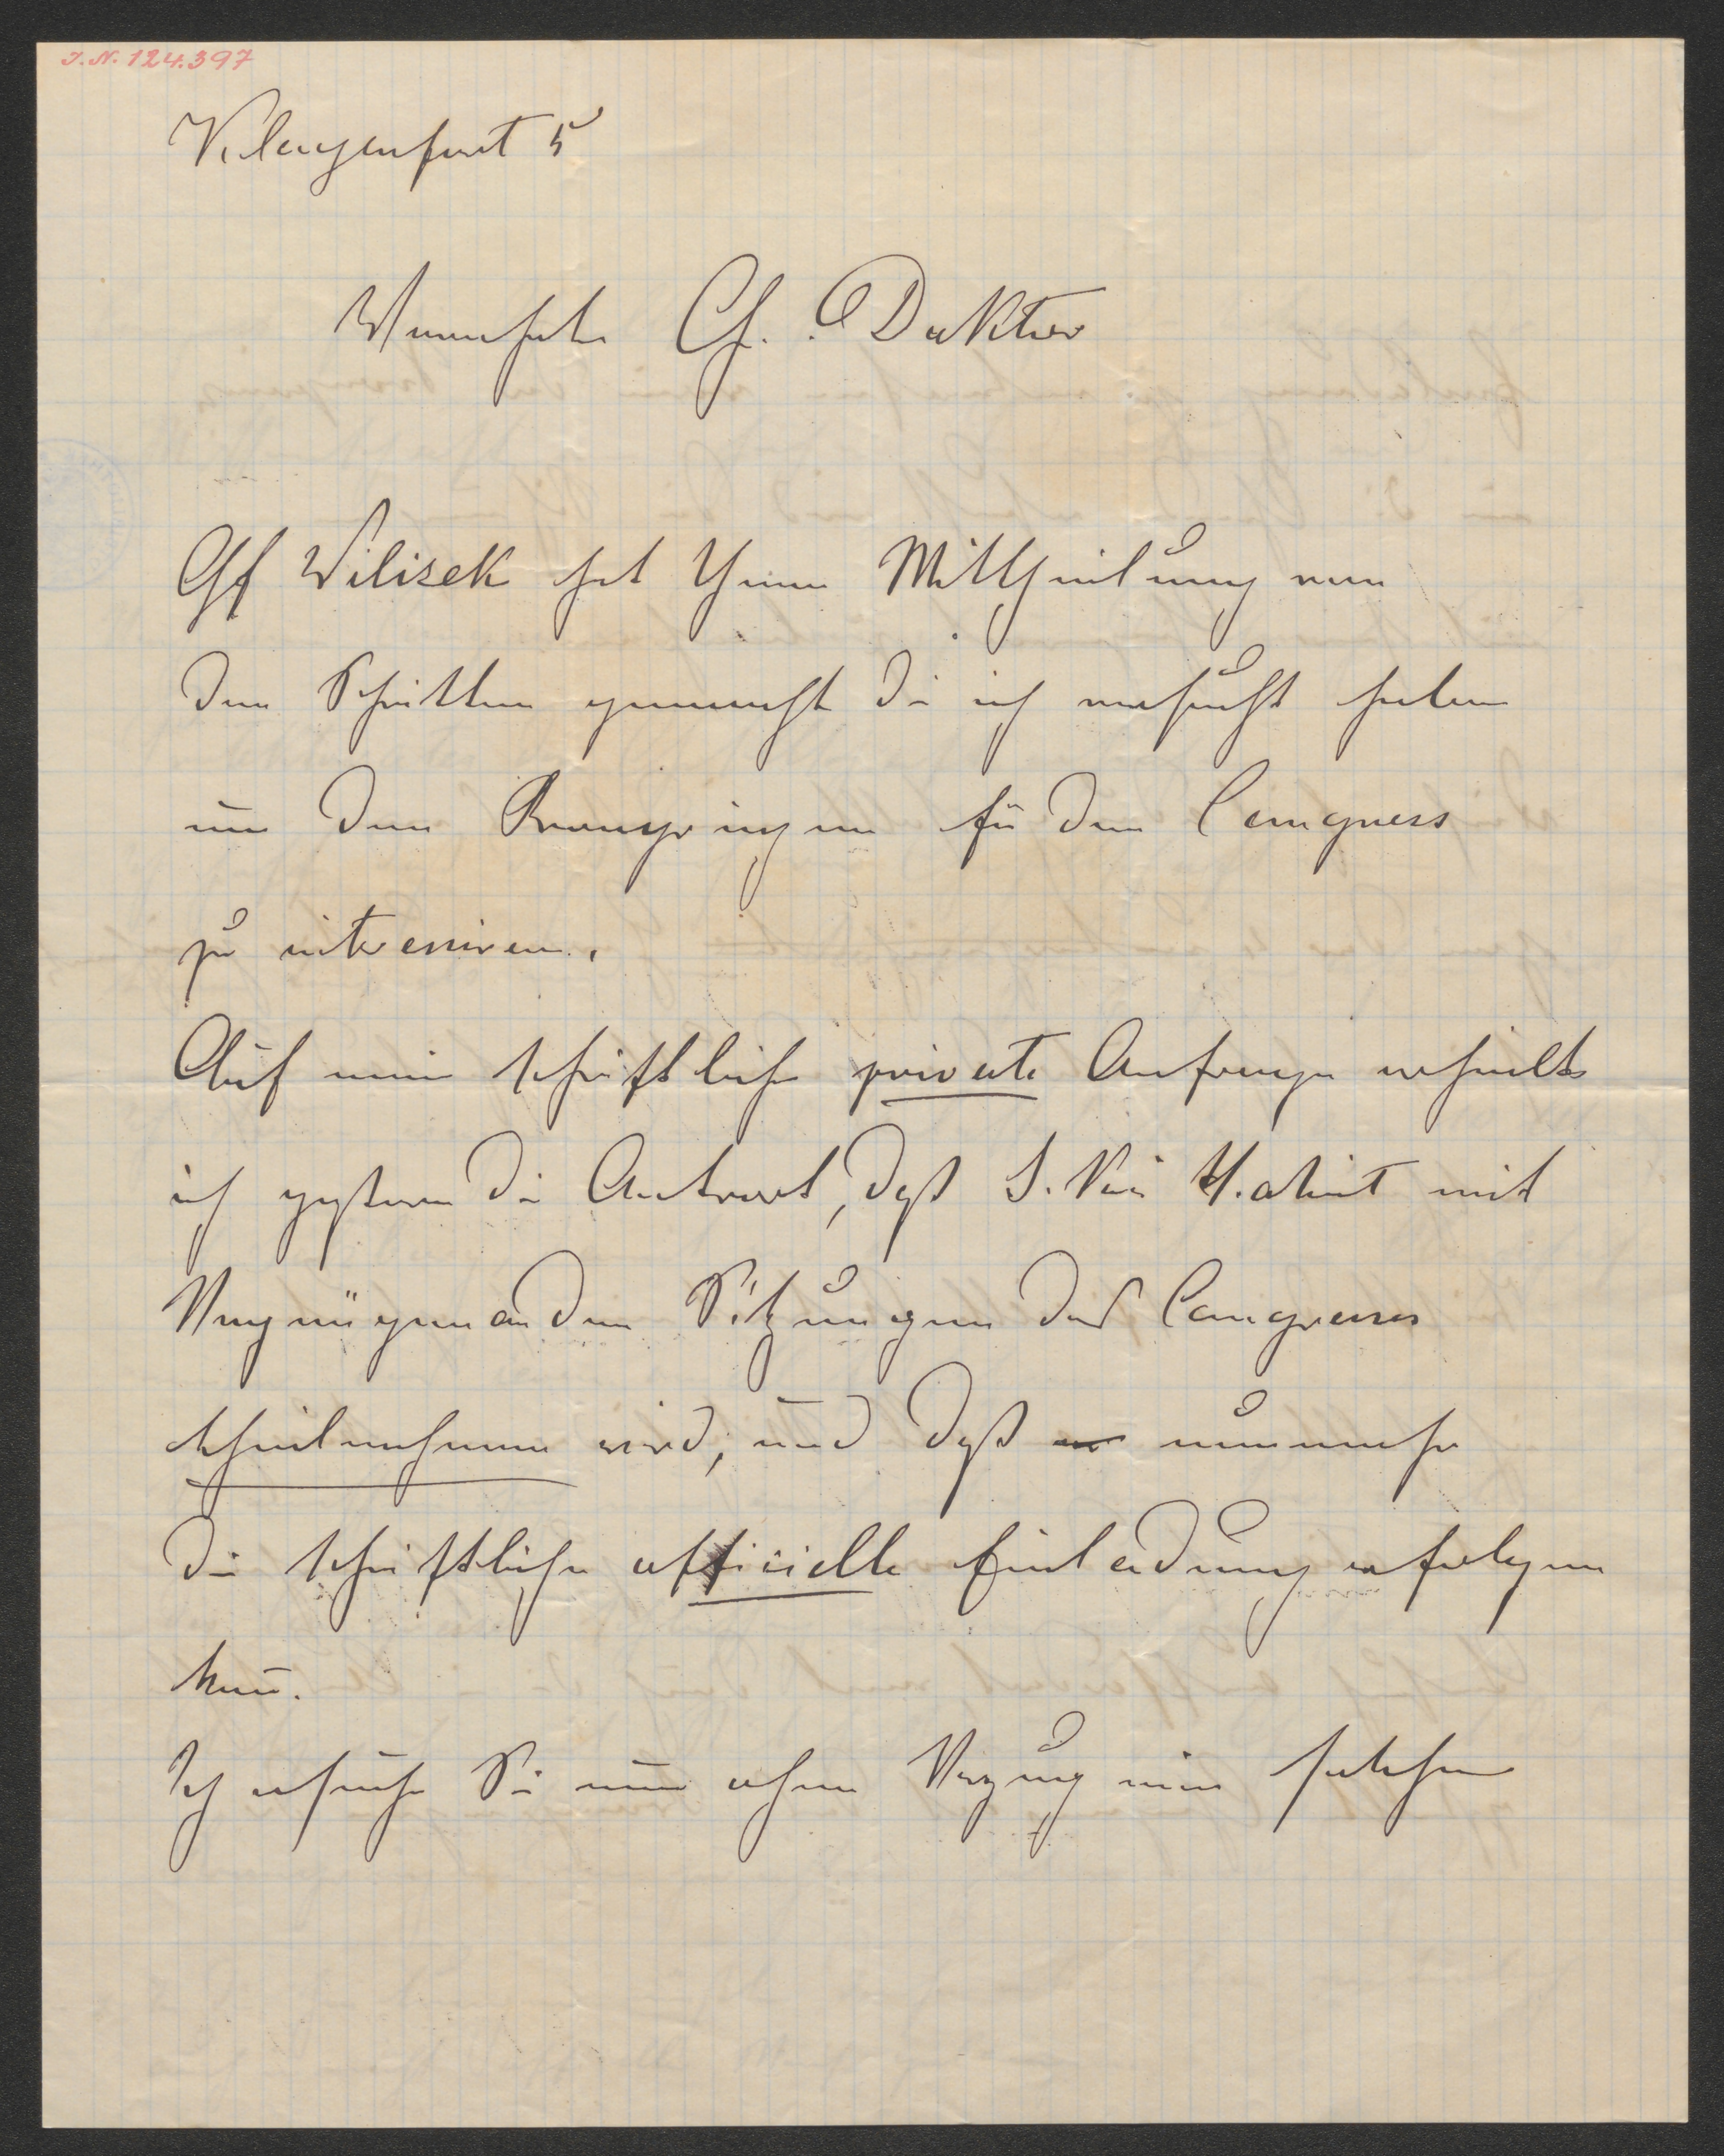 I. N. 124.397
Klagenfurt 5
Verehrter H. Doktor
Gf Wilczek hat Ihnen Mittheilung von
den Schritten gemacht die ich versucht habe
um den Kronprinzen für den Congress
zu interessiren.
Auf meine schriftliche private Anfrage erhielt
ich gestern die Antwort, daß S. Kai Hoheit mit
Vergnügen an den Sitzungen des Congresses
theilnehmen wird, und daß nunmehr
die schriftliche officielle Einladung erfolgen
kann.
Ich ersuche Sie nun ohne Verzug eine solche